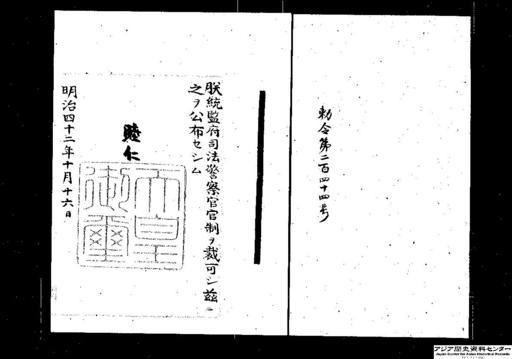 勅令第二百四十四号
朕統監府司法警察官官制ヲ裁可シ茲ニ
之ヲ公布セシム
睦仁
天皇御璽
明治四十二年十月十六日
アジア歴史資料センター
Japan Center for Asian Historical Records